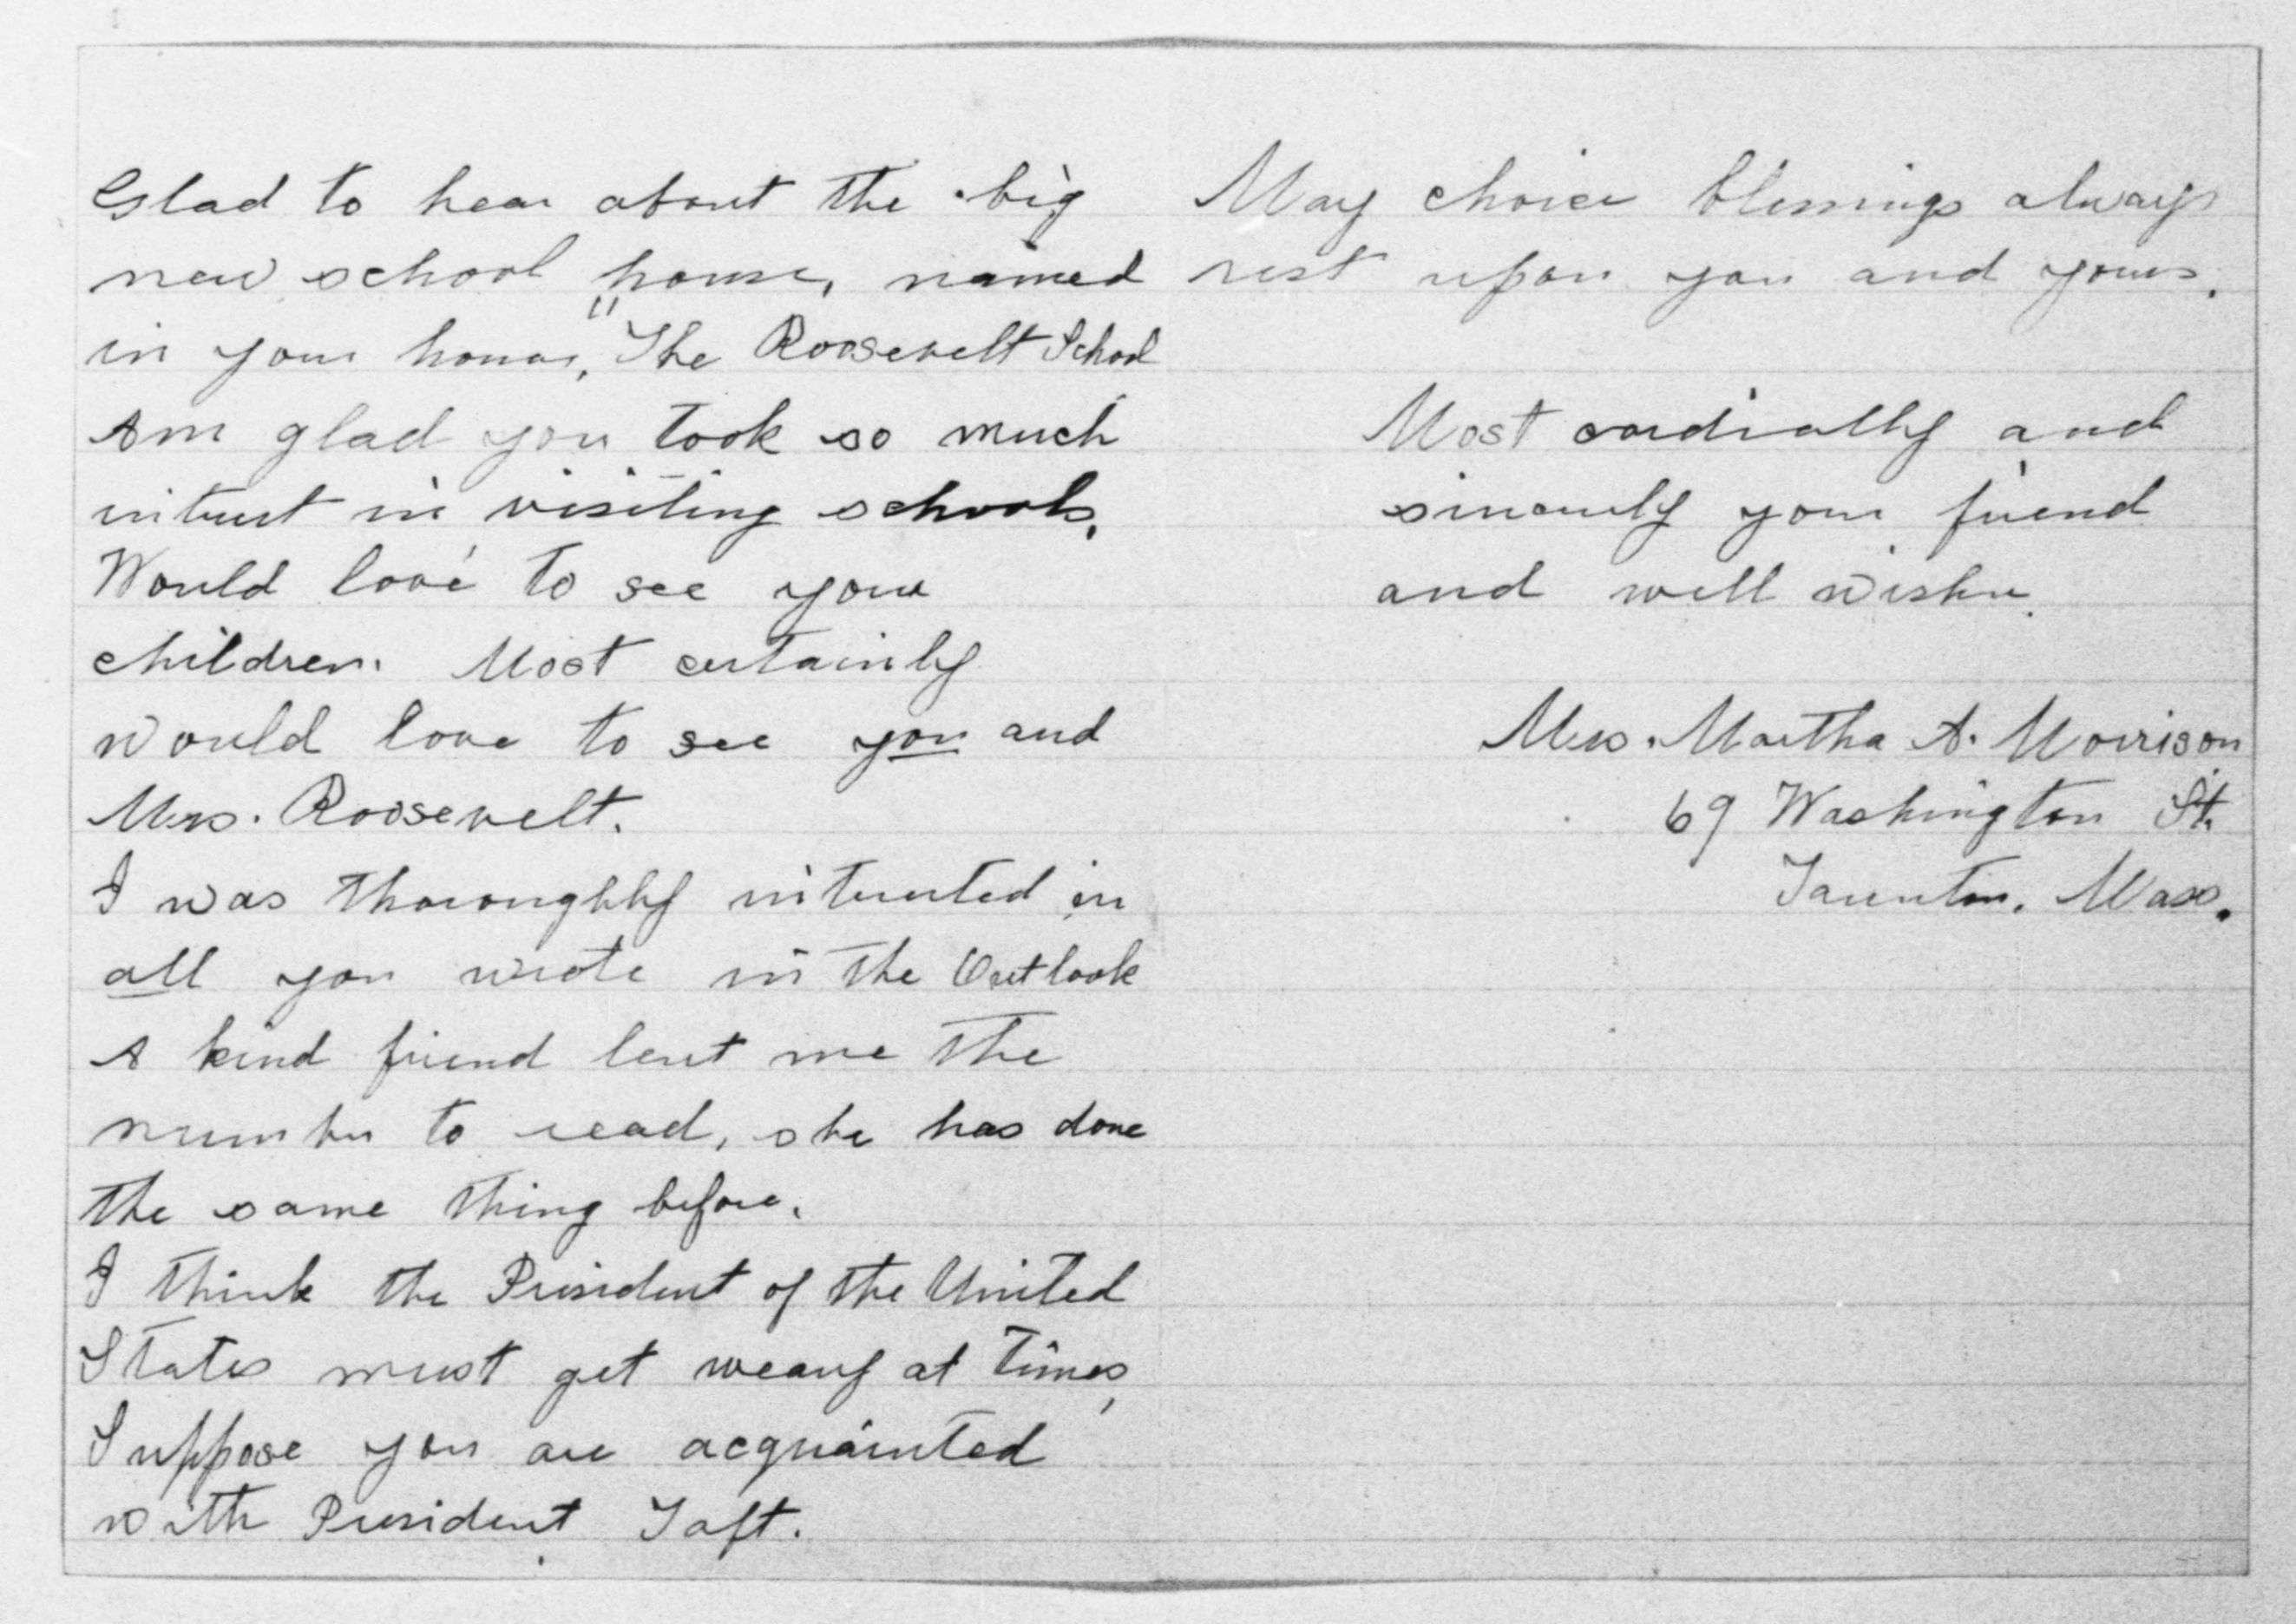 Glad to hear about the big
new school house, named
in your honor, "The Roosevelt School
Am glad you took so much
interest in visiting schools.
Would love to see your
children. Most certainly
would love to see you and
Mrs. Roosevelt.
I was thoroughly interested in
all you wrote in the Outlook
A kind friend lent me the
number to read, she has done
the same thing before.
I think the President of the United
States must get weary at times,
Suppose you are acquainted
with President Taft.
May choice blessings always
rest upon you and yours.
Most cordially and
sincerely your friend
and well wisher.
Mrs. Martha A. Morrison
69 Washington St.
Taunton. Mass.